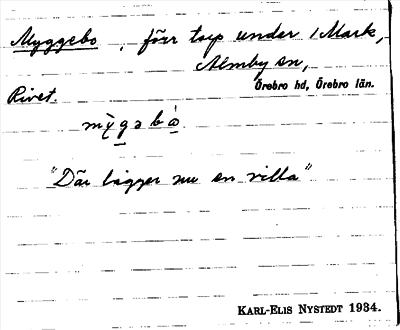 Myggebo, förr torp under 1 Mark,
Almby sn,
Örebro hd, Örebro län.
Rivet.
"Där ligger nu en villa"
KARL-ELIS NYSTEDT 1934.